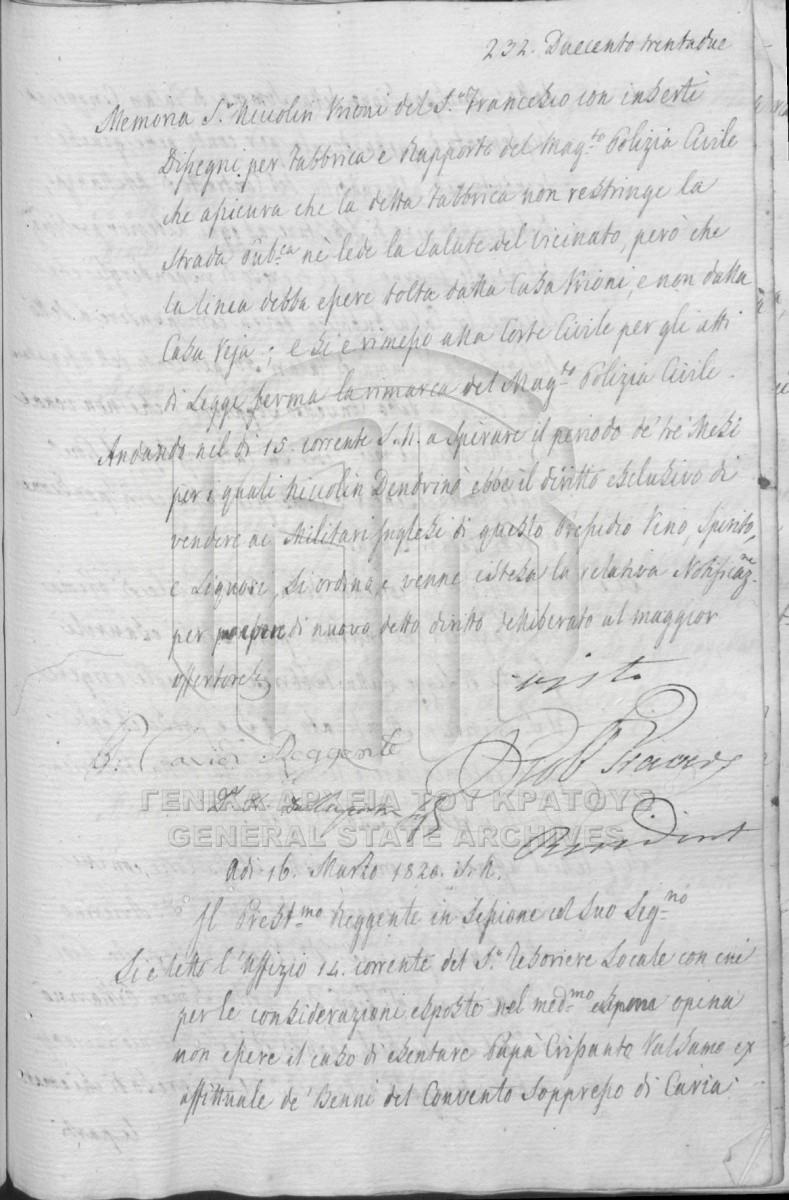 232. Duecento trentadue
Memoria S.r Niccolin Krioni del S.r Francesco con inserti
Dissegni per fabbrica e Rapporto del Mag.to Polizia Civile
che assicura che la detta fabbrica non restringe la
strada Pub.ca nè lede la salute del vicinato, però che
la linea debba essere tolta dalla Casa Krioni, e non dalla
Casa Veja; e si è rimesso alla Corte Civile per gli atti
di Legge ferma la rimarca del Mag.to Polizia Civile.
Andando nel dì 15. corrente S.N. a spirare il periodo de' tre Mesi
per i quali Niccolin Dendrinò ebbe il diritto esclusivo di
vendere ai Militari Inglesi di questo Presidio Vino, Spirito,
e Liquori, si ordina, e venne estesa la relativa Notificaz.ne
per essere di nuovo detto diritto deliberato al maggior
offerore
visto
Reggente
ΓΕΝΙΚΑ ΑΡΧΕΙΑ ΤΟΥ ΚΡΑΤΟΥΣ
GENERAL STATE ARCHIVES
Adì 16. Marzo 1820. S.N.
Il Prest.mo Reggente in Sessione col suo Seg.no
Si è letto l'Uffizio 14. corrente del S.r Tesoriere Locale con cui
per le considerazioni esposte nel med.mo opina
non essere il caso di esentare Papà Crisanto Valsamo ex
affittuale de' Benni del Convento Soppresso di Caria